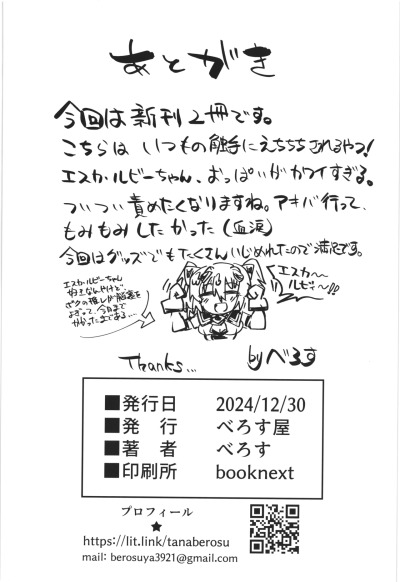 あとがき
今回は新刊2冊です。
こちらは いつもの触手にえちちちされるやつ!
エスカ・ルビーちゃん、おっぱいがカワイすぎる。
ついつい責めたくなりますね。アキバ行って、
もみもみしたかった(血涙)
今回はグッズでもたくさんいじめれたので満足です。
エスカ・ルビーちゃん
好きなんやけど
ボクの推しが脳裏を
よぎって、今日まで
エスカ〜
ルビィ〜!!
Thanks...
by べろす
■発行日 2024/12/30
■発 行 べろす屋
■著 者 べろす
■印刷所 booknext
プロフィール
★
https://lit.link/tanaberosu
mail: berosuya3921@gmail.com